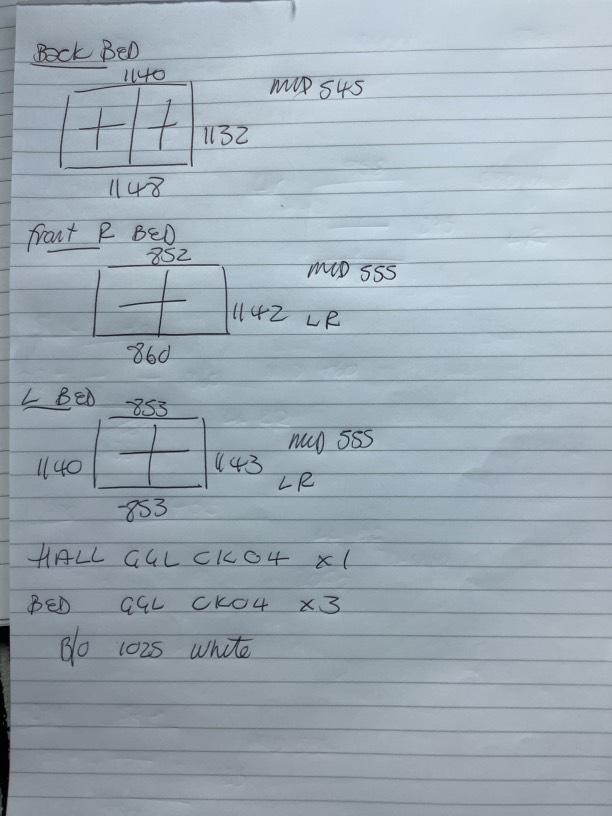 Back BED
1140
MID 545
1132
1148
front R BED
852
MID 555
1142 LR
860
L BED
853
MID 555
1140
1143
LR
853
HALL GGL CK04 x1
BED GGL CK04 x3
B/O 1025 White